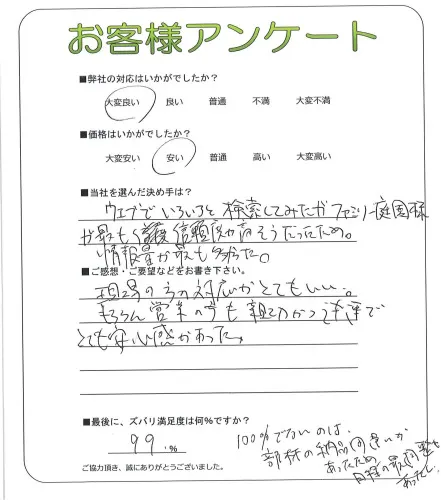 お客様アンケート
■弊社の対応はいかがでしたか？
大変良い 良い 普通 不満 大変不満
■価格はいかがでしたか？
大変安い 安い 普通 高い 大変高い
■当社を選んだ決め手は？
ウェブでいろいろと検索してみたがファミリー庭園様
が最も信頼度が高そうだったため。
情報量が最も多かった。
■ご感想・ご要望などをお書き下さい。
現場の方の対応がとてもいい。
もちろん営業の方も親切かつ迅速で
とても安心感があった。
■最後に、ズバリ満足度は何％ですか？
99.％
100％でないのは、
部材の納品間違いが
あったため
日程の
あったし
ご協力頂き、誠にありがとうございました。